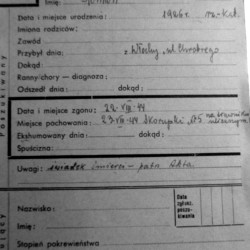 Imię:
Data i miejsce urodzenia: 1926 r. rz.-kat.
Imiona rodziców:
Zawód
Przybył dnia: z Włochy, ul. Chrobrego
Dokąd:
Ranny/chory — diagnoza:
Odszedł dnia: dokąd:
Data i miejsce zgonu: 22-VIII-44
Miejsce pochowania: 23-VIII-44
Ekshumowany dnia: dokąd:
Spuścizna:
Uwagi: świadek śmierci - patrz Akta
Nazwisko:
Imię:
Stopień pokrewieństwa
Data zgłosz. poszukiwania
Poszukiwany